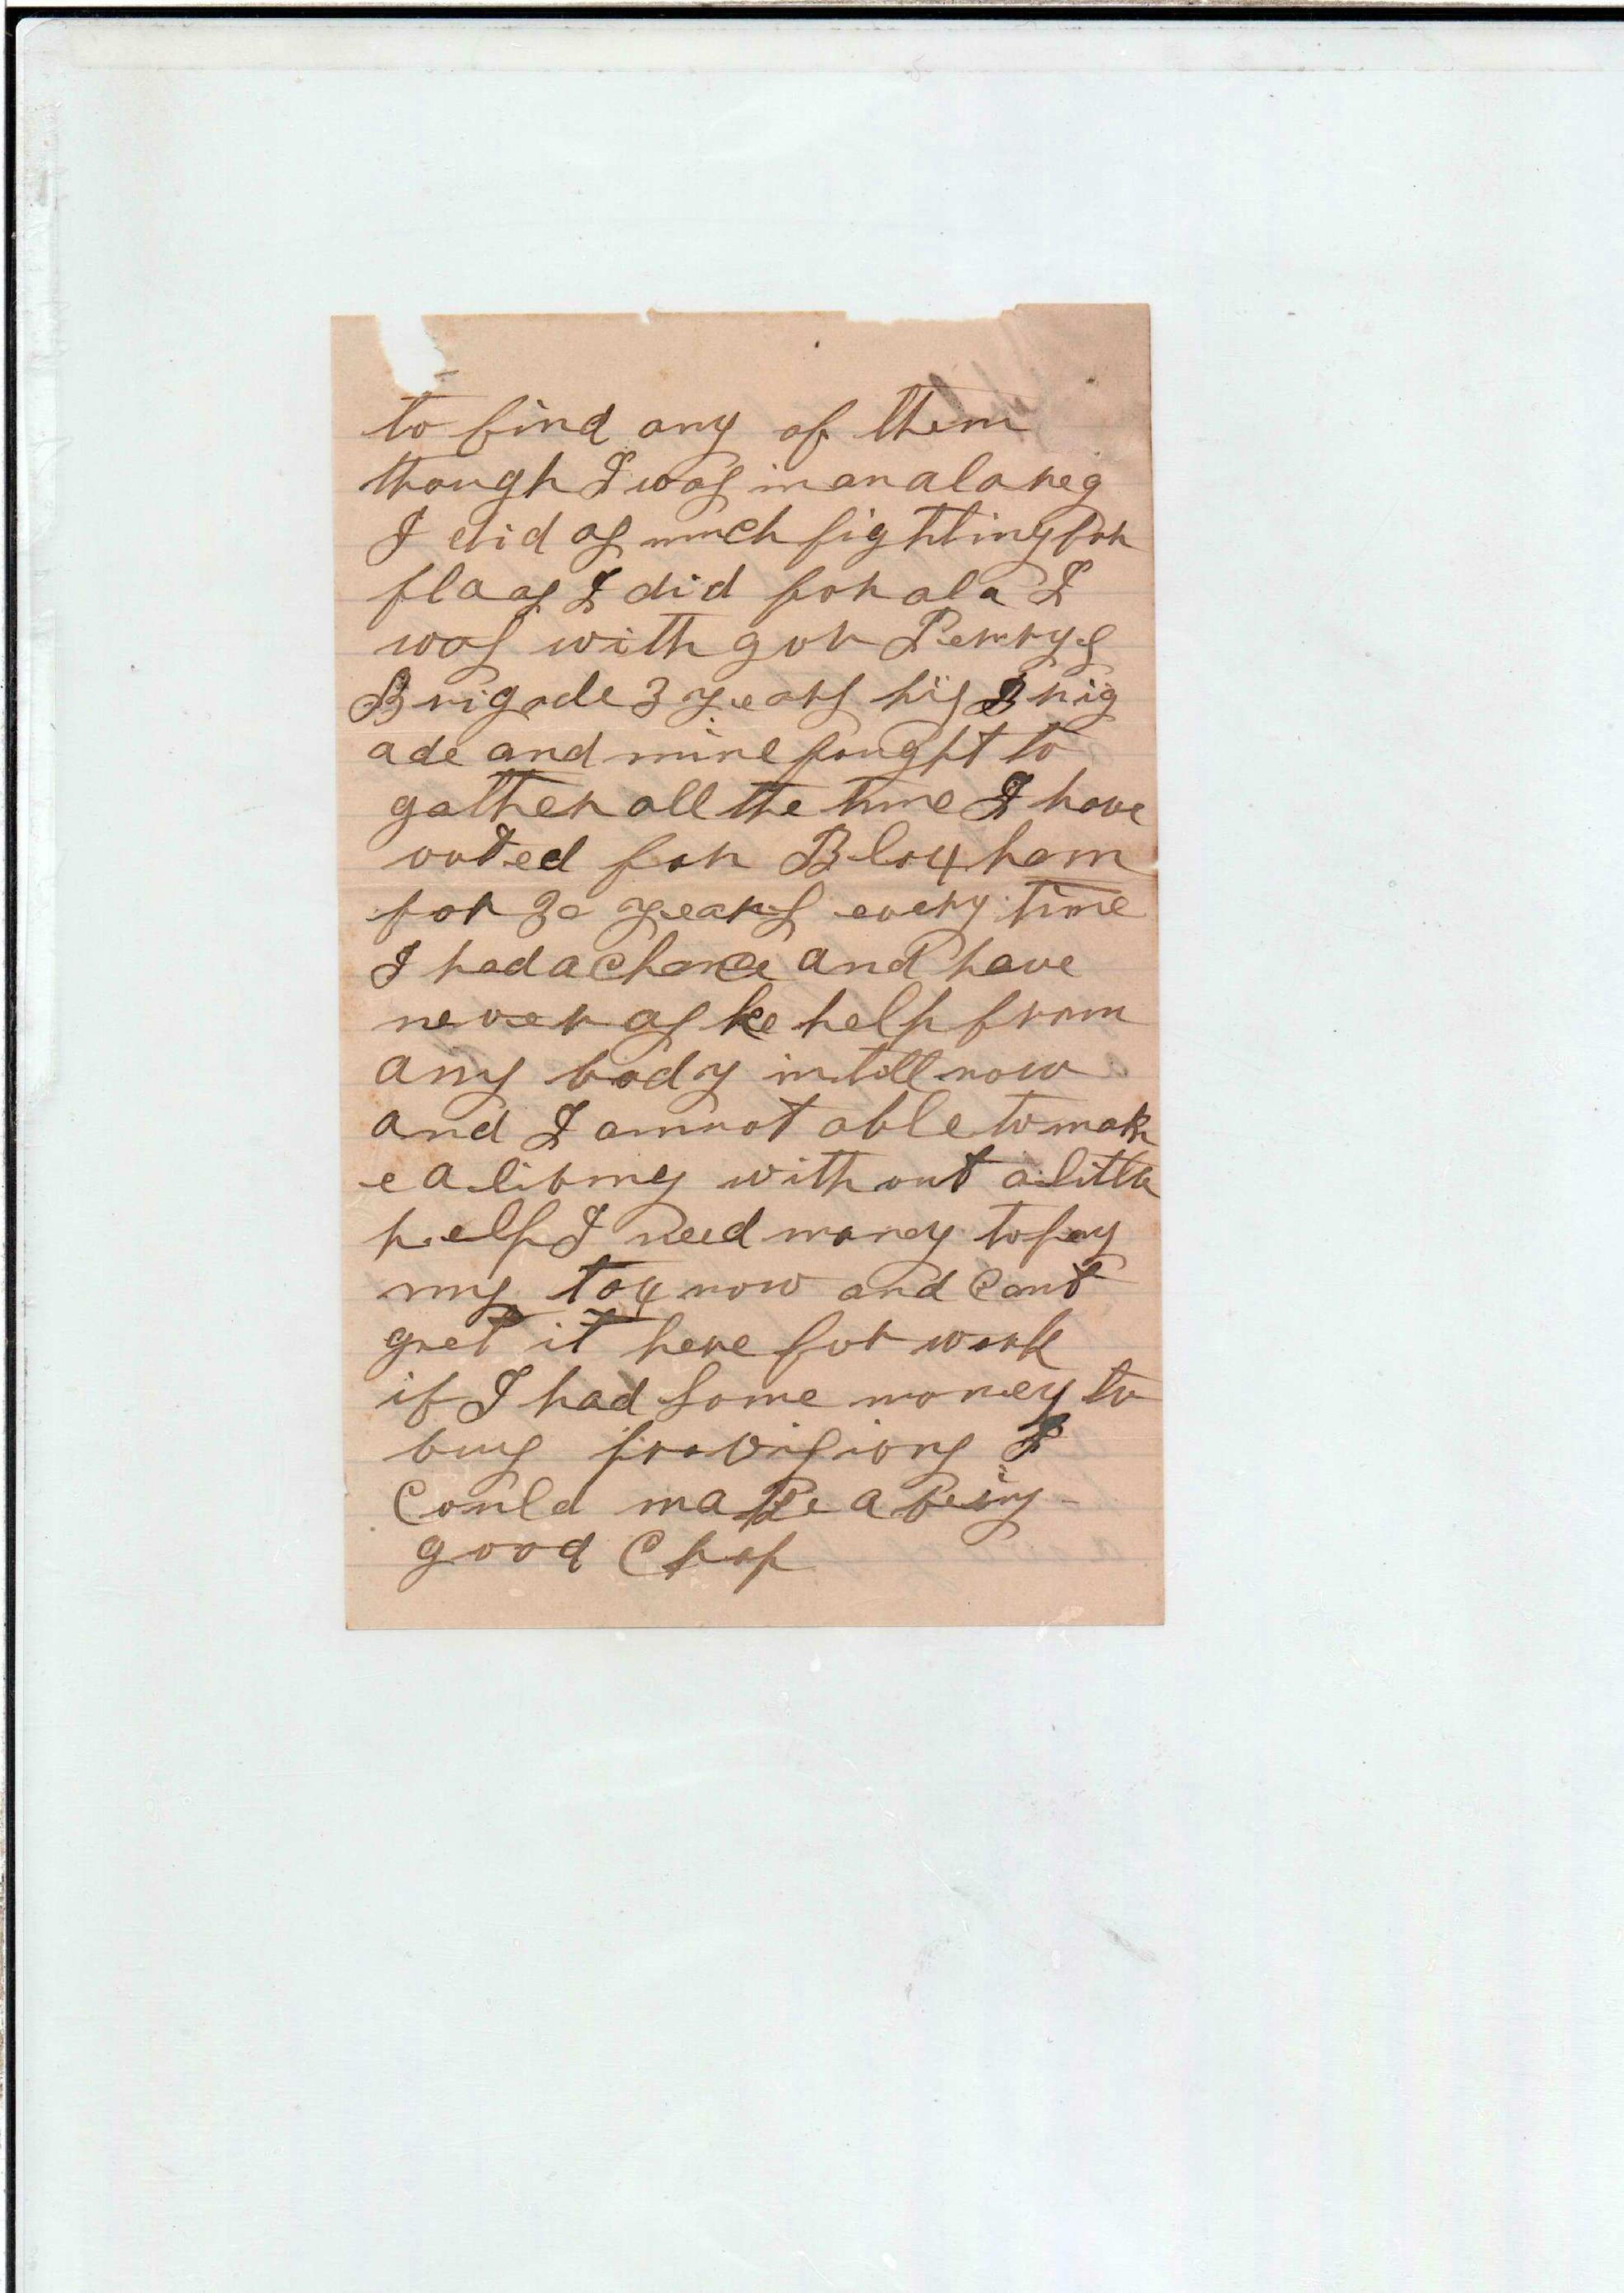 to find any of them
though I was in an ala reg
I did as much fighting for
fla as I did for ala I
was with gov Perrys
Brigade 3 years his Brig
ade and mine fought to
gather all the time I have
voted for Bloxham
for 30 years every time
I had a chance and have
never aske help from
any body intill now
and I am not able to mak
e a living with out a little
help I need money to pay
my tax now and cant
get it here for work
if I had some money to
buy provisions I
could make a
good Crop